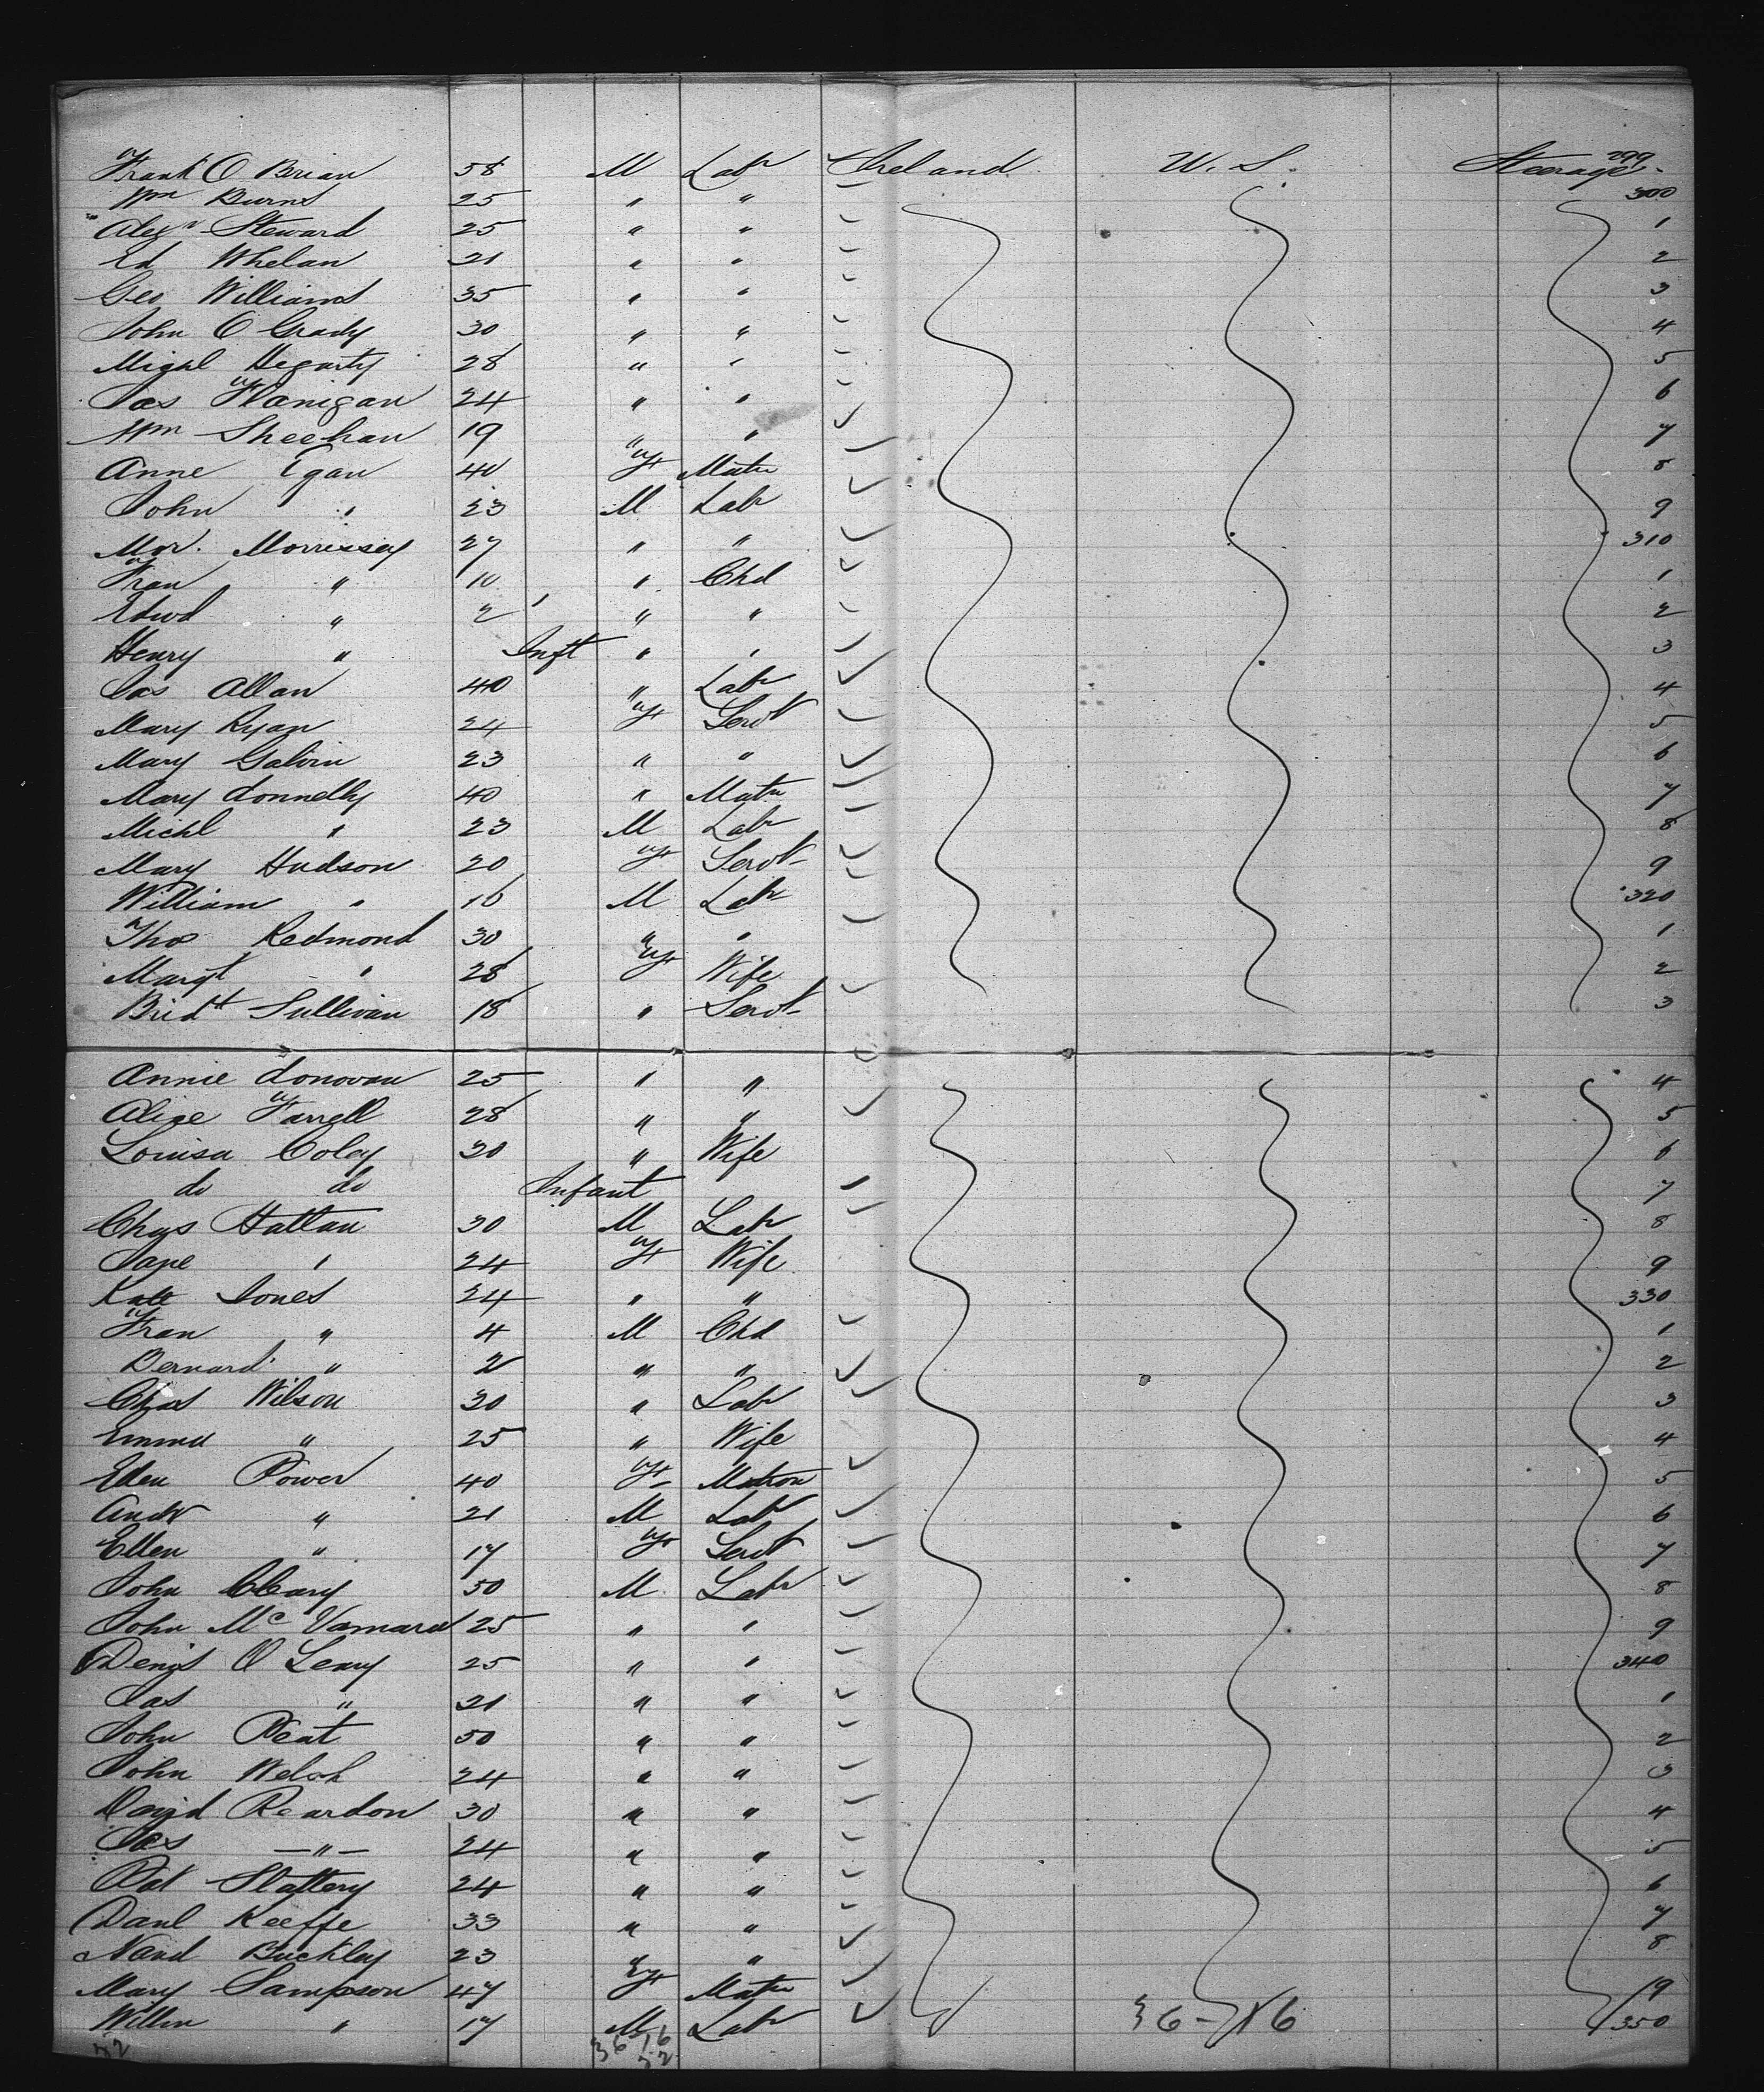 Frank O Brian 58 M Labr Ireland U. S. Steerage 299
Wm Burns 25 " " 300
Alexr Steward 25 " " 1
Ed Whelan 21 " " 2
Geo Williams 35 " " 3
John O Grady 30 " " 4
Migal Hegarty 28 " " 5
Jas Flanigan 24 " " 6
Wm Sheehan 19 " " 7
Anne Egan 40 F Matn 8
John " 23 M Labr 9
Mor. Morrissey 27 " " 310
Fran " 10 " Chd 1
Edwd " 2 " " 2
Henry " Inft " " 3
Jas Allan 40 " Labr 4
Mary Ryan 24 F Servt 5
Mary Galvin 23 " " 6
Mary Donnelly 40 " Matn 7
Michl " 23 M Labr 8
Mary Hudson 20 F Servt 9
William " 16 M Labr 320
Thos Redmond 30 " " 1
Margt " 28 F Wife 2
Bridt Sullivan 18 " Servt 3
Annie Donovan 25 " " 4
Alice Farrell 28 " " 5
Louisa Coley 30 " Wife 6
do do Infant 7
Chas Hattan 30 M Labr 8
Jane " 24 F Wife 9
Kate Jones 24 " " 330
Fran " 4 M Chd 1
Bernard " 2 " " 2
Chas Wilson 30 " Labr 3
Emma " 25 " Wife 4
Ellen Power 40 F Matron 5
Andw " 21 M Labr 6
Ellen " 17 F Servt 7
John Cleary 50 M Labr 8
John Mc 25 " " 9
Denis O Leary 25 " " 340
Jas " 21 " " 1
John Peat 50 " " 2
John Welsh 24 " " 3
David Reardon 30 " " 4
Jas —"— 24 " " 5
Pat Slattery 24 " " 6
Danl Keeffe 33 " " 7
Buckley 23 " " 8
Mary Sampson 47 F Matn 9
Willm " 17 M Labr 36-16 350
52 36 16
52